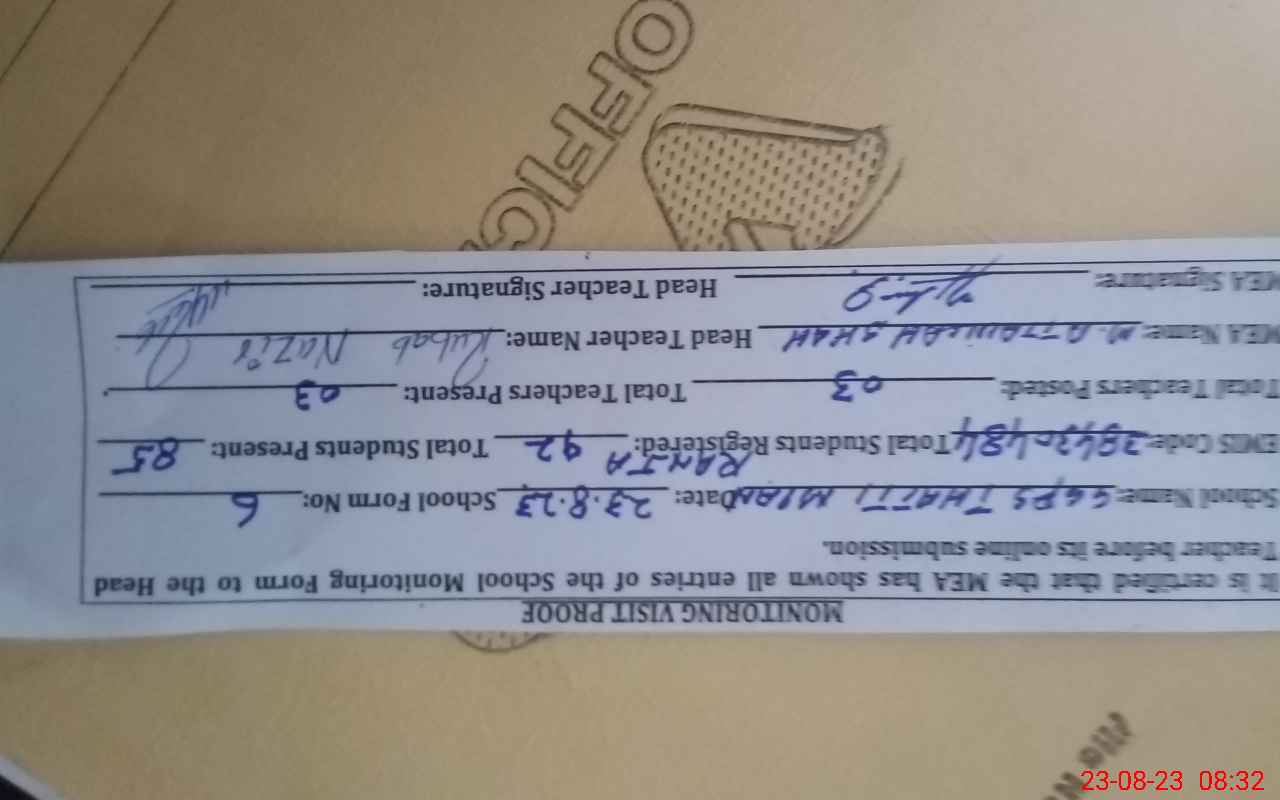 MONITORING VISIT PROOF
It is certified that the MEA has shown all entries of the School Monitoring Form to the Head
Teacher before its online submission.
School Name: GGPS THATTI MIAN Date: 23.8.23 School Form No: 6
RANJA
EMIS Code: 38430484 Total Students Registered: 92 Total Students Present: 85
Total Teachers Posted: 03 Total Teachers Present: 03
MEA Name: M. ATTAULLAH SHAH Head Teacher Name: Rubab Nazir
MEA Signature: Head Teacher Signature:
OFFIC
23-08-23 08:32